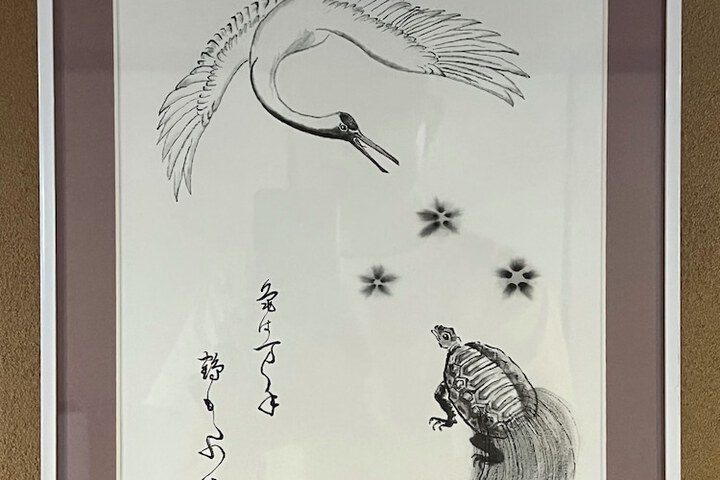 亀は万年
鶴も